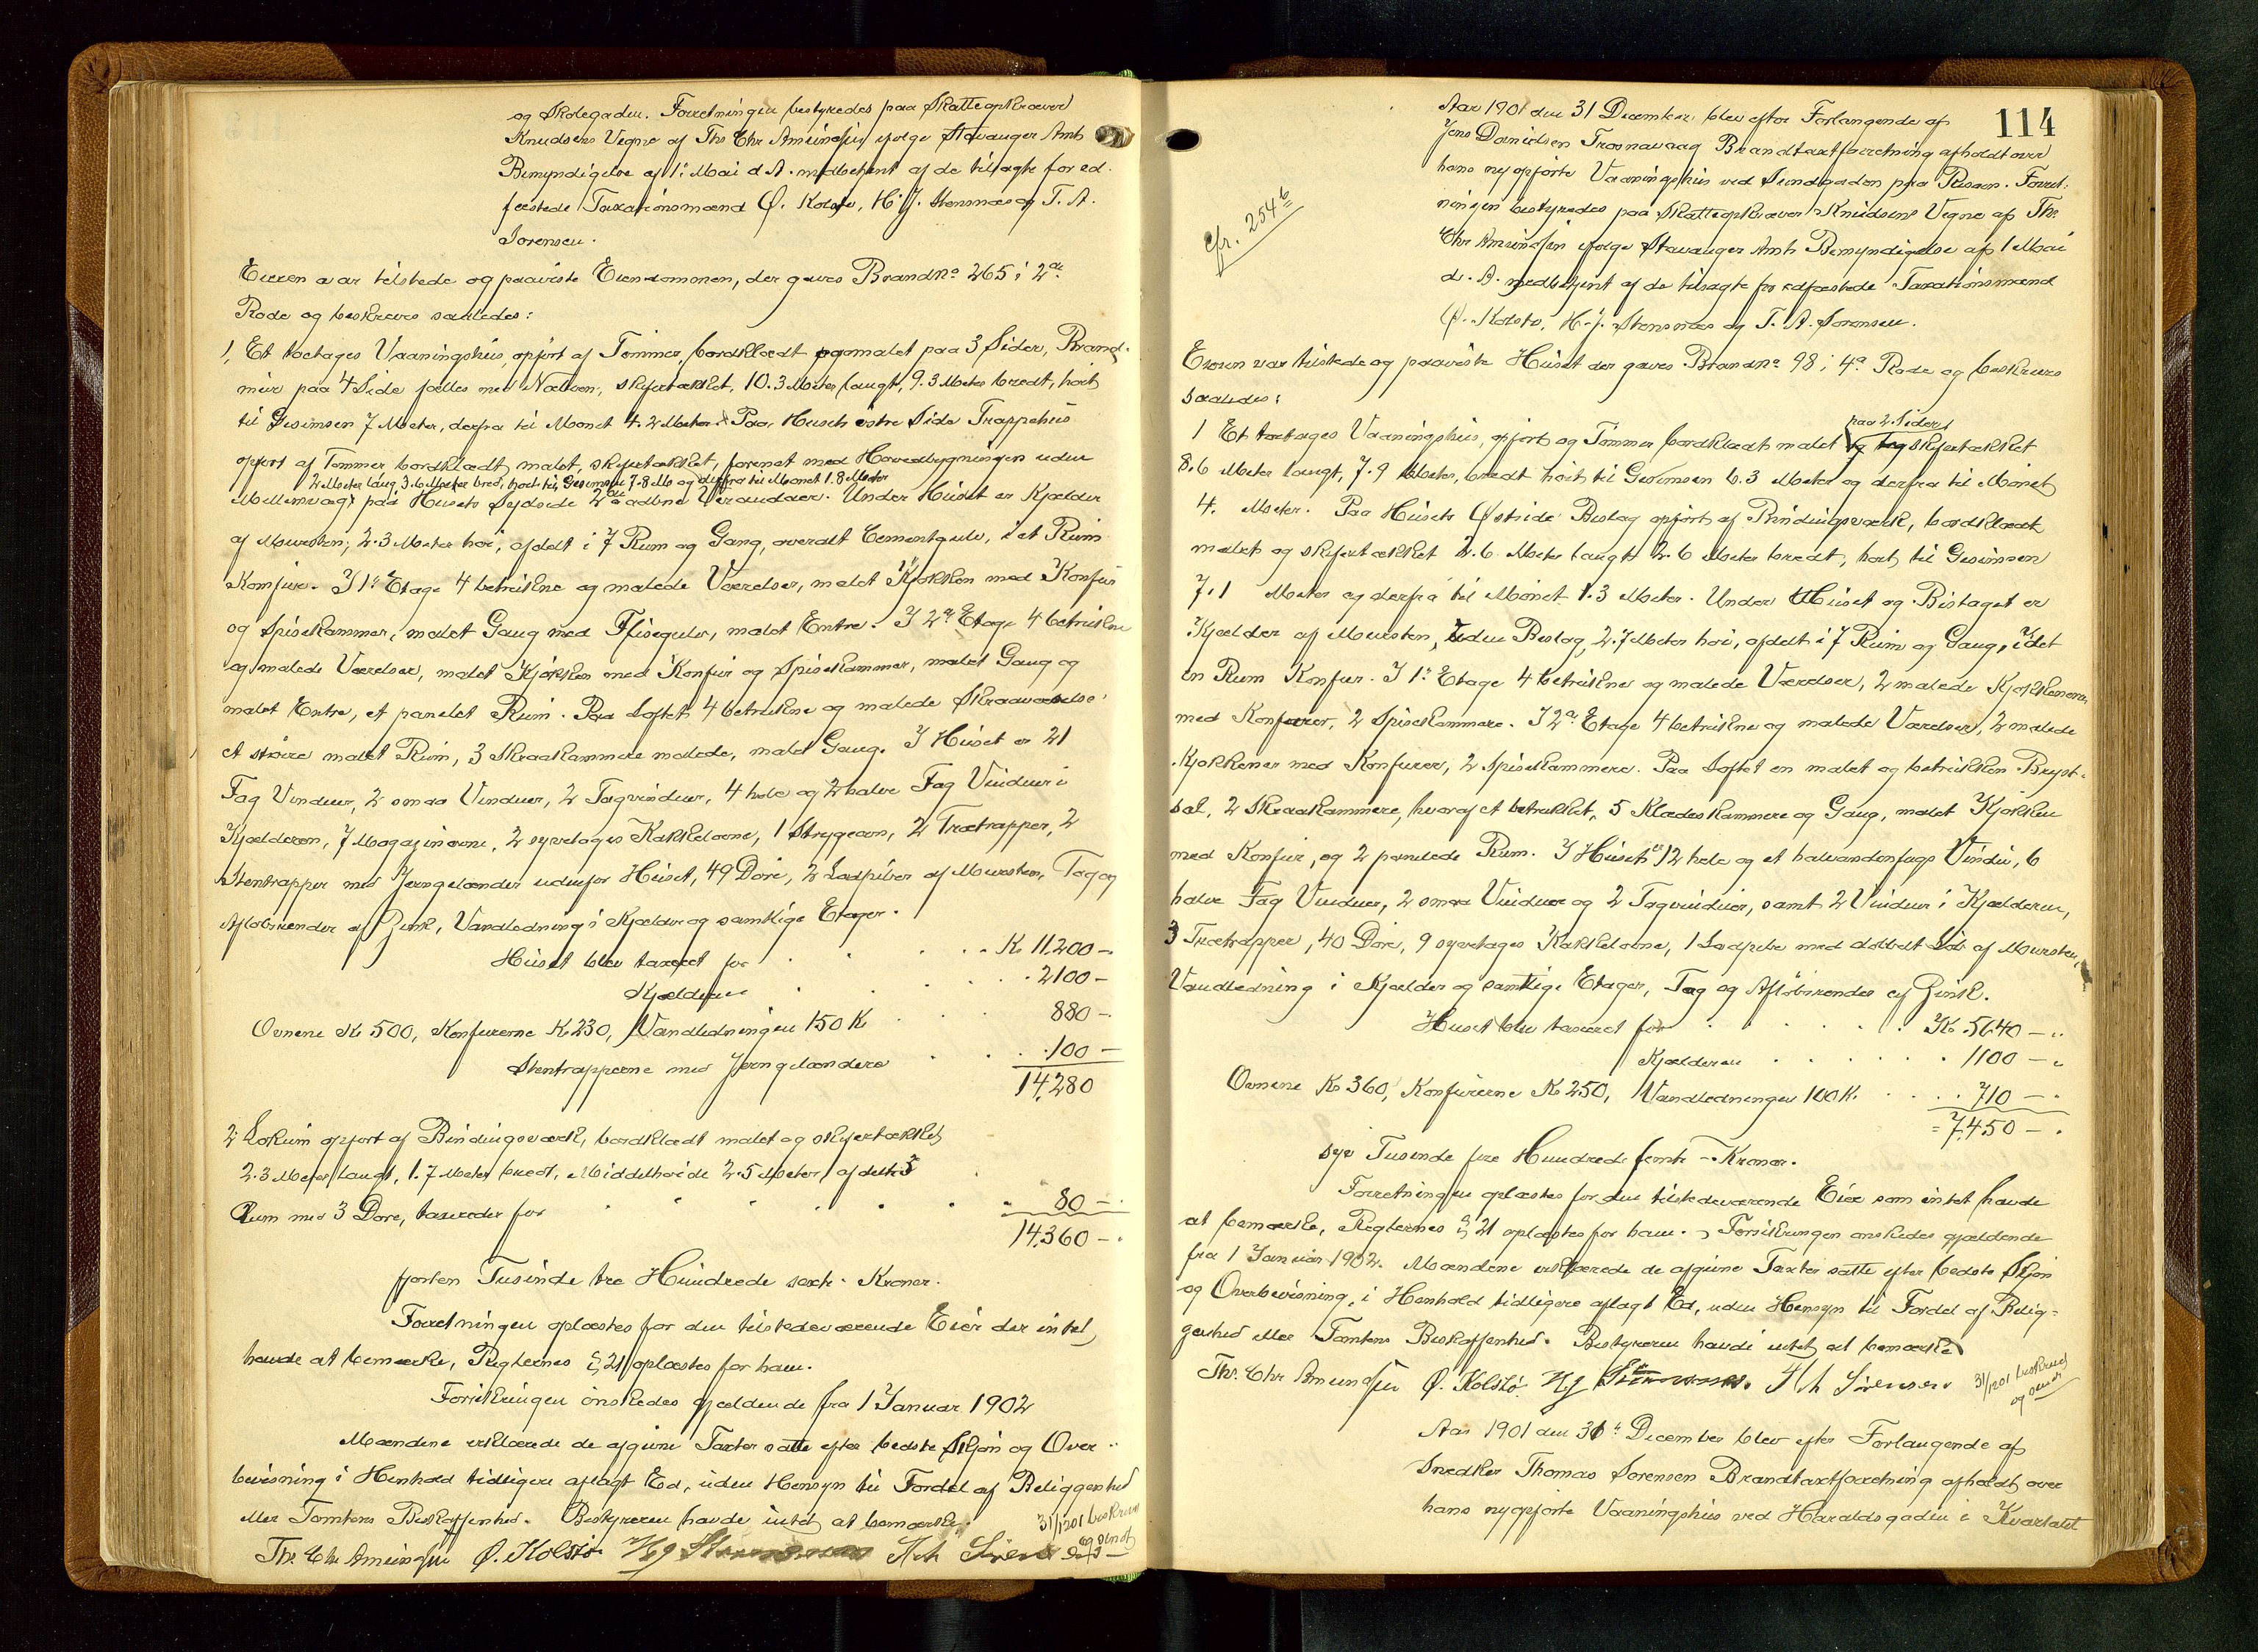 og Skolegaden. Forretningen bestyredes paa Skatteopkræver
Knudsens Vegne af Ths Chr Amundsen ifølge Stavanger Amts
Bemyndigelse af 1ʳ Mai d A. medbetjent af de tilsagte for ed-
fæstede Taxationsmænd Ø. Kolstø, H. J. Stensnæs og T. A.
Sørensen.
Eieren var tilstede og paaviste Eiendommen, der gaves Brandnº 265 i 2ᵈᵉ
Rode og beskreves saaledes:
1, Et toetages Vaaningshus, opført af Tømmer, bordklædt og malet paa 3 Sider, Brand-
mur paa 4 Side fælles med Naboen, skifertækket, 10.3 Meter langt, 9.3 Meter bredt, høit
til Gesimsen 7 Meter, derfra til Mønet 4.2 Meter. Paa Husets østre Side Trappehus
opført af Tømmer bordklædt malet, skifertækket, forenet med Hovedbygningen uden
2 Meter lang 3.6 Meter bred, høit til Gesimsen 7.8 M og derfra til Mønet 1.8 Meter
Mellemvæg paa Husets Sydside 2 aabne Verandaer. Under Huset er Kjælder
af Mursten, 2.3 Meter høi, afdelt i 7 Rum og Gang, overalt Cementgulv, i et Rum
Komfur. I 1ˢᵗ Etage 4 betrukne og malede Værelser, malet Kjøkken med Komfur
og Spisekammer, malet Gang med Flisegulv, malet Entre. I 2ᵈᵉ Etage 4 betrukne
og malede Værelser, malet Kjøkken med Komfur og Spisekammer, malet Gang og
malet Entre, et panelet Rum. Paa Loftet 4 betrukne og malede Skraaværelse
et større malet Rum, 3 Skraakammere malede, malet Gang. I Huset er 21
Fag Vinduer, 2 smaa Vinduer, 2 Tagvinduer, 4 hele og 2 halve Fag Vinduer i
Kjælderen, 7 Magazinovne, 2 syvetages Kakkelovne, 1 Strygeovn, 2 Trætrapper, 2
Stentrapper med Jerngelænder udenfor Huset, 49 Døre, 2 Ladpiber af Mursten, Tag og
Afløbsrender af Zink, Vandledning i Kjælder og samtlige Etager.
Huset blev taxeret for . . . . Kr 11,200 -
Kjælderen . . . . 2100 -
Ovnene Kr 500, Komfurerne Kr 230, Vandledningen 150 Kr . . . 880 -
Stentrapperne med Jerngelændere . . . 100 -
14,280
2 Lokum opført af Bindingsværk, bordklædt malet og skifertækket
2.3 Meter langt, 1.7 Meter bredt, Middelhøide 2.5 Meter afdelt 3
Rum med 3 Døre, taxeredes for . . . . . 80 -
14,360 -
fjorten Tusinde tre Hundrede sexti - Kroner.
Forretningen oplæstes for den tilstedeværende Eier der intet
havde at bemærke, Reglernes § 21 oplæstes for ham.
Forsikringen ønskedes gjældende fra 1 Januar 1902
Mændene erklærede de afgivne Taxter satte efter bedste Skjøn og Over-
bevisning i Henhold tidligere aflagt Ed, uden Hensyn til Fordel af Beliggenhed
eller Tomtens Beskaffenhed. Bestyreren havde intet at bemærke.
31/1201 beskreven
og sendt
Ths Chr Amundsen Ø. Kolstø H J Stensnæs T A Sørensen
114
Aar 1901 den 31 December blev efter Forlangende af
Jens Danielsen Trosnavaag Brandtaxtforretning afholdt over
hans nyopførte Vaaningshus ved Sundgaden paa Risøen. Forret-
ningen bestyredes paa Skatteopkræver Knudsens Vegne af Ths
Chr Amundsen ifølge Stavanger Amts Bemyndigelse af 1 Mai
d. A. medbetjent af de tilsagte for edfæstede Taxationsmænd
Ø. Kolstø, H. J. Stensnæs og T. A. Sørensen.
cfr. 254 b
Eieren var tilstede og paaviste Huset der gaves Brandnº 98 i 4ᵈᵉ Rode og beskreves
saaledes:
paa 2 Sider
1 Et toetages Vaaningshus, opført og Tømmer bordklædt malet og tag skifertækket
8.6 Meter langt, 7.9 Meter, bredt høit til Gesimsen 6.3 Meter og derfra til Mønet
4. Meter. Paa Husets Østside Bislag opført af Bindingsværk, bordklædt
malet og skifertækket 2.6 Meter langt 2.6 Meter bredt, høit til Gesimsen
7.1 Meter og derfra til Mønet 1.3 Meter. Under Huset og Bislaget er
Kjælder af Mursten, uden Beslag, 2.7 Meter høi, afdelt i 7 Rum og Gang, i det
en Rum Komfur. I 1ˢᵗ Etage 4 betrukne og malede Værelser, 2 malede Kjøkkener
med Komfurer, 2 Spisekammere. I 2ᵈᵉ Etage 4 betrukne og malede Værelser, 2 malede
Kjøkkener med Komfurer, 2 Spisekammere. Paa Loftet en malet og betrukken Bryst-
sal, 2 Skraakammere, hvoraf et betrukket, 5 Klædeskammere og Gang, malet Kjøkken
med Komfur, og 2 panelede Rum. I Huset er 12 hele og et halvandenfags Vindu, 6
halve Fag Vinduer, 2 smaa Vinduer og 2 Tagvinduer, samt 2 Vinduer i Kjælderen,
3 Trætrapper, 40 Døre, 9 syvetages Kakkelovne, 1 Ladpibe med dobbelt Løb af Mursten,
Vandledning i Kjælder og samtlige Etager, Tag og Afløbsrender af Zink.
Huset blev taxeret for . . . . . Kr. 5640 -
Kjælderen . . . . . 1100 -
Ovnene Kr 360, Komfurerne Kr 250, Vandledningen 100 K. . . . . 710 -
7450 -
syv Tusinde fire Hundrede femti - Kroner.
Forretningen oplæstes for den tilstedeværende Eier som intet havde
at bemærke, Reglernes § 21 oplæstes for ham. Forsikringen ønskedes gjældende
fra 1 Januar 1902. Mændene erklærede de afgivne Taxter satte efter bedste Skjøn
og Overbevisning, i Henhold tidligere aflagt Ed, uden Hensyn til Fordel af Belig-
genhed eller Tomtens Beskaffenhed. Bestyreren havde intet at bemærke
Ths. Chr Amundsen Ø. Kolstø H J Stensnæs. T A Sørensen.
31/1201 beskrevet
og sendt
Aar 1901 den 31ᵗᵉ December blev efter Forlangende af
Snedker Thomas Sørensen Brandtaxtforretning afholdt over
hans nyopførte Vaaningshus ved Haraldsgaden i Kvartalet